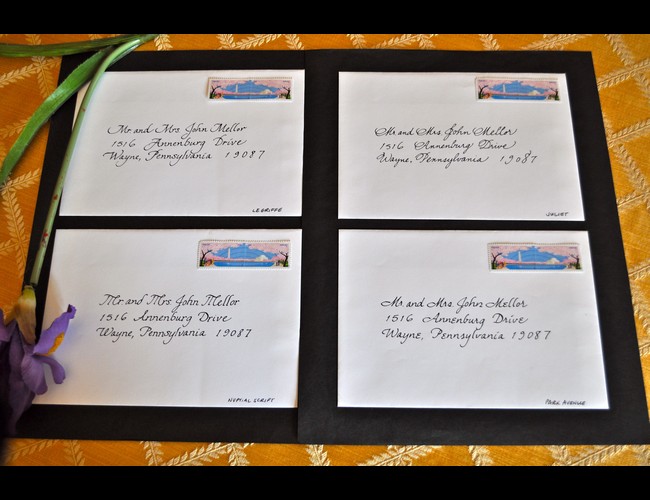 Mr and Mrs. John Mellor
1516 Annenburg Drive
Wayne, Pennsylvania 19087
LE GRIFFE
Mr and Mrs. John Mellor
1516 Annenburg Drive
Wayne, Pennsylvania 19087
JULIET
Mr and Mrs John Mellor
1516 Annenburg Drive
Wayne, Pennsylvania 19087
NUPTIAL SCRIPT
Mr. and Mrs. John Mellor
1516 Annenburg Drive
Wayne, Pennsylvania 19087
PARK AVENUE